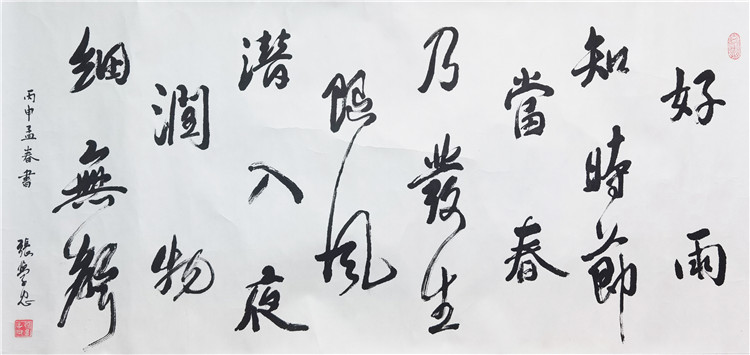 好雨
知時節
當春
乃發生
隨風
潜入夜
潤物
細無聲
丙申孟春書 張學